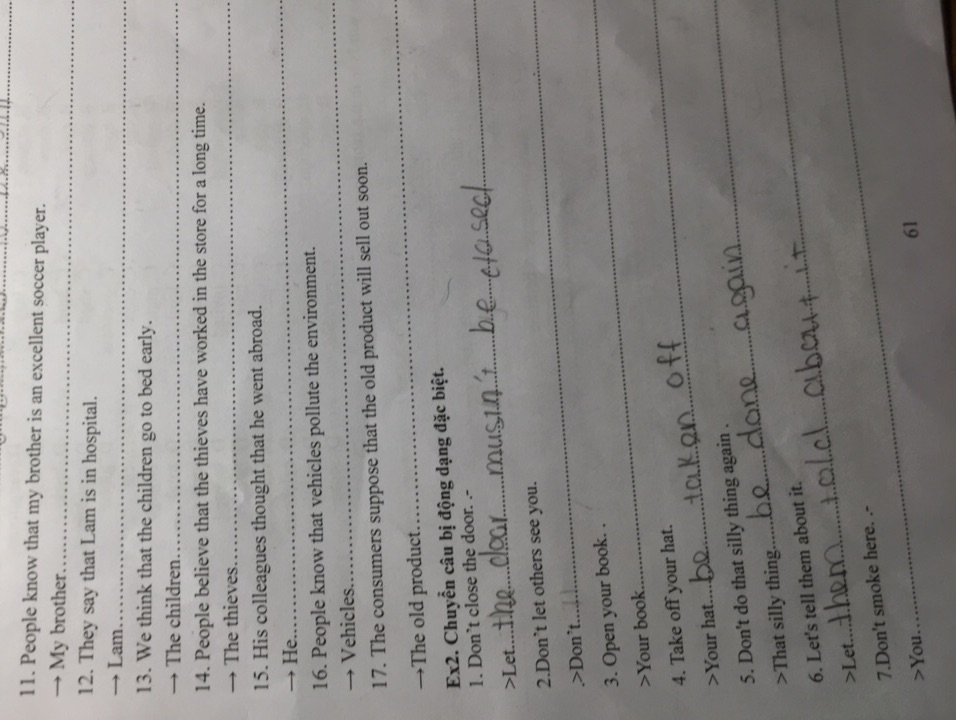 11. People know that my brother is an excellent soccer player.
→ My brother……………………………
12. They say that Lam is in hospital.
→ Lam……………………………
13. We think that the children go to bed early.
→ The children……………………………
14. People believe that the thieves have worked in the store for a long time.
→ The thieves……………………………
15. His colleagues thought that he went abroad.
→ He……………………………
16. People know that vehicles pollute the environment.
→ Vehicles……………………………
17. The consumers suppose that the old product will sell out soon.
→The old product……………………………
Ex2. Chuyển câu bị động dạng đặc biệt.
1. Don't close the door. .-
>Let....the door musun't be closed
2.Don't let others see you.
.>Don't……………………………
3. Open your book. .
>Your book……………………………
4. Take off your hat.
>Your hat...be taken off
5. Don't do that silly thing again .
>That silly thing....be done again
6. Let's tell them about it.
>Let....them told about it
7.Don't smoke here. .-
>You……………………………
61